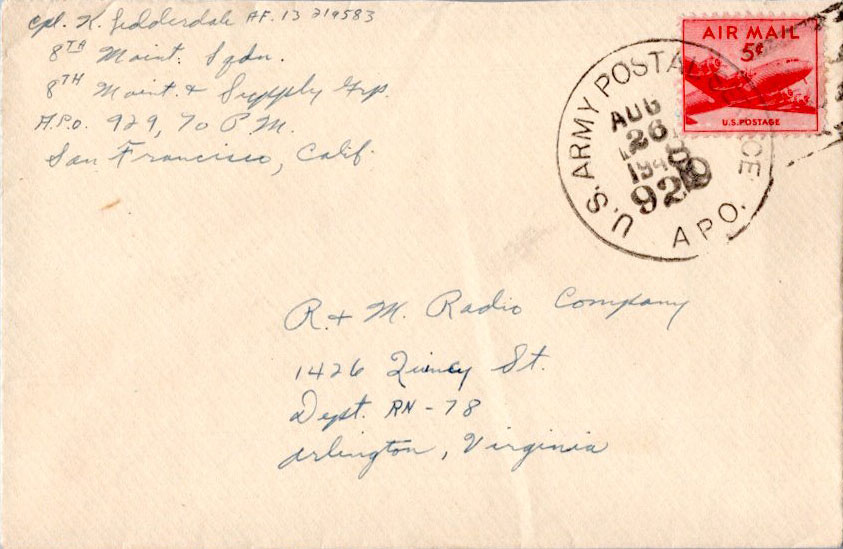 Cpl. K. Lidderdale AF. 13 219583
8TH Maint. Sqdn.
8TH Maint. & Supply Grp.
A.P.O. 929, % P.M.
San Francisco, Calif.
AIR MAIL
5¢
U.S. POSTAGE
U.S. ARMY POSTAL SERVICE
AUG
26
929
A.P.O.
R. & M. Radio Company
1426 Quincy St.
Dept. RN-78
Arlington, Virginia